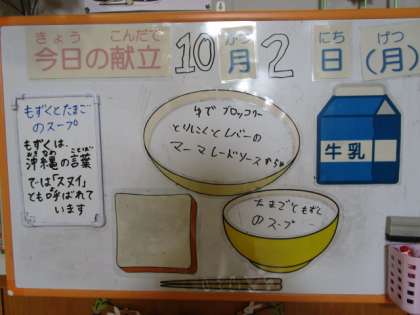 きょう こんだて
今日の献立
10 がつ
月 2 にち
日 げつ
(月)
もずくとたまご
のスープ
もずくは、
おきなわ ことば
沖縄の言葉
では「スヌイ」
とも呼ばれて
います
ゆでブロッコリー
とりにくとレバーの
マーマレードソースからめ
牛乳
たまごともずく
のスープ